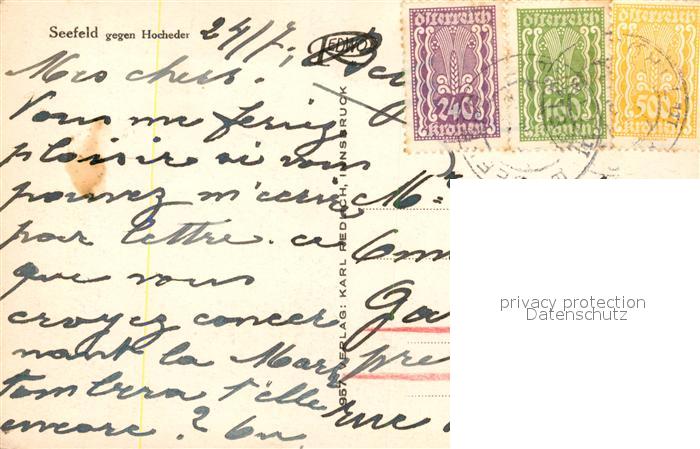 Seefeld gegen Hocheder
24/7,
EDMO
Mes chers.
Vous me feriez
plaisir si vous
pouvez m'ecrire
par lettre. ce
que vous
croyez concer
nant la Mark
tombera t'elle
encore?
957 VERLAG: KARL REDLICH, INNSBRUCK
österreich
240
kronen
österreich
kronen
österreich
500
kronen
M
Ga
pre
rue
privacy protection
Datenschutz